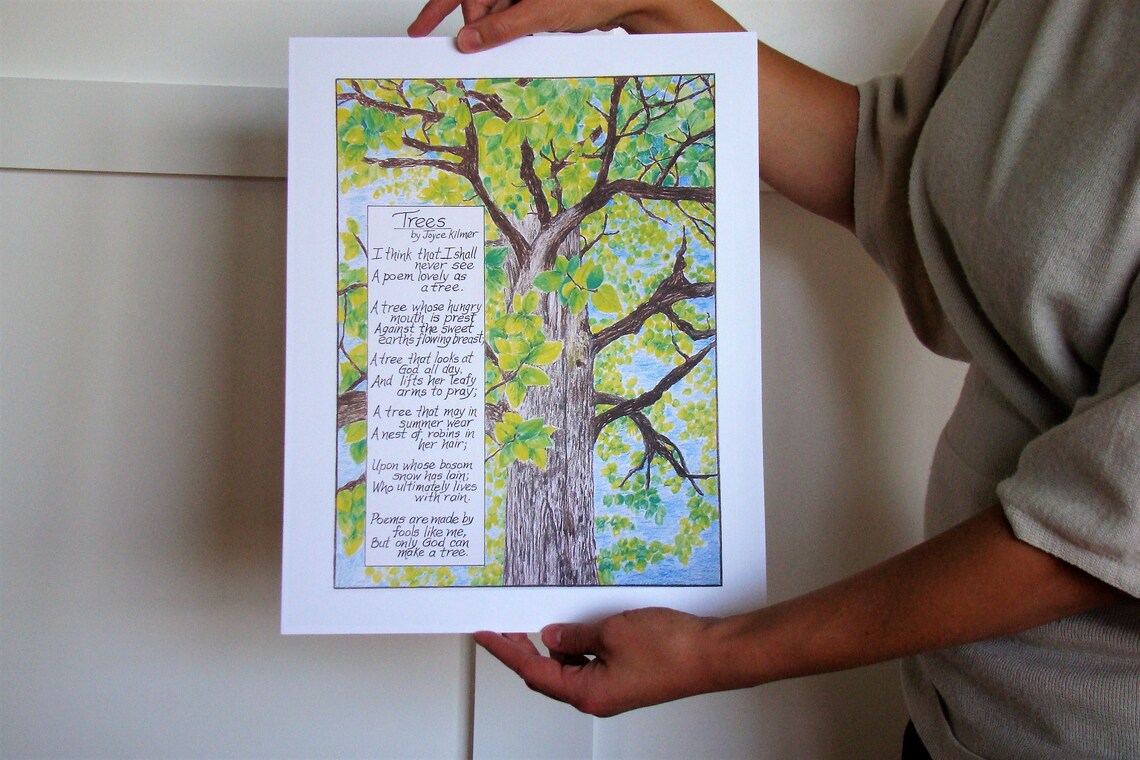 Trees
by Joyce Kilmer
I think that I shall
never see
A poem lovely as
a tree.
A tree whose hungry
mouth is prest
Against the sweet
earths flowing breast;
A tree that looks at
God all day,
And lifts her leafy
arms to pray;
A tree that may in
summer wear
A nest of robins in
her hair;
Upon whose bosom
snow has lain;
Who ultimately lives
with rain.
Poems are made by
fools like me,
But only God can
make a tree.